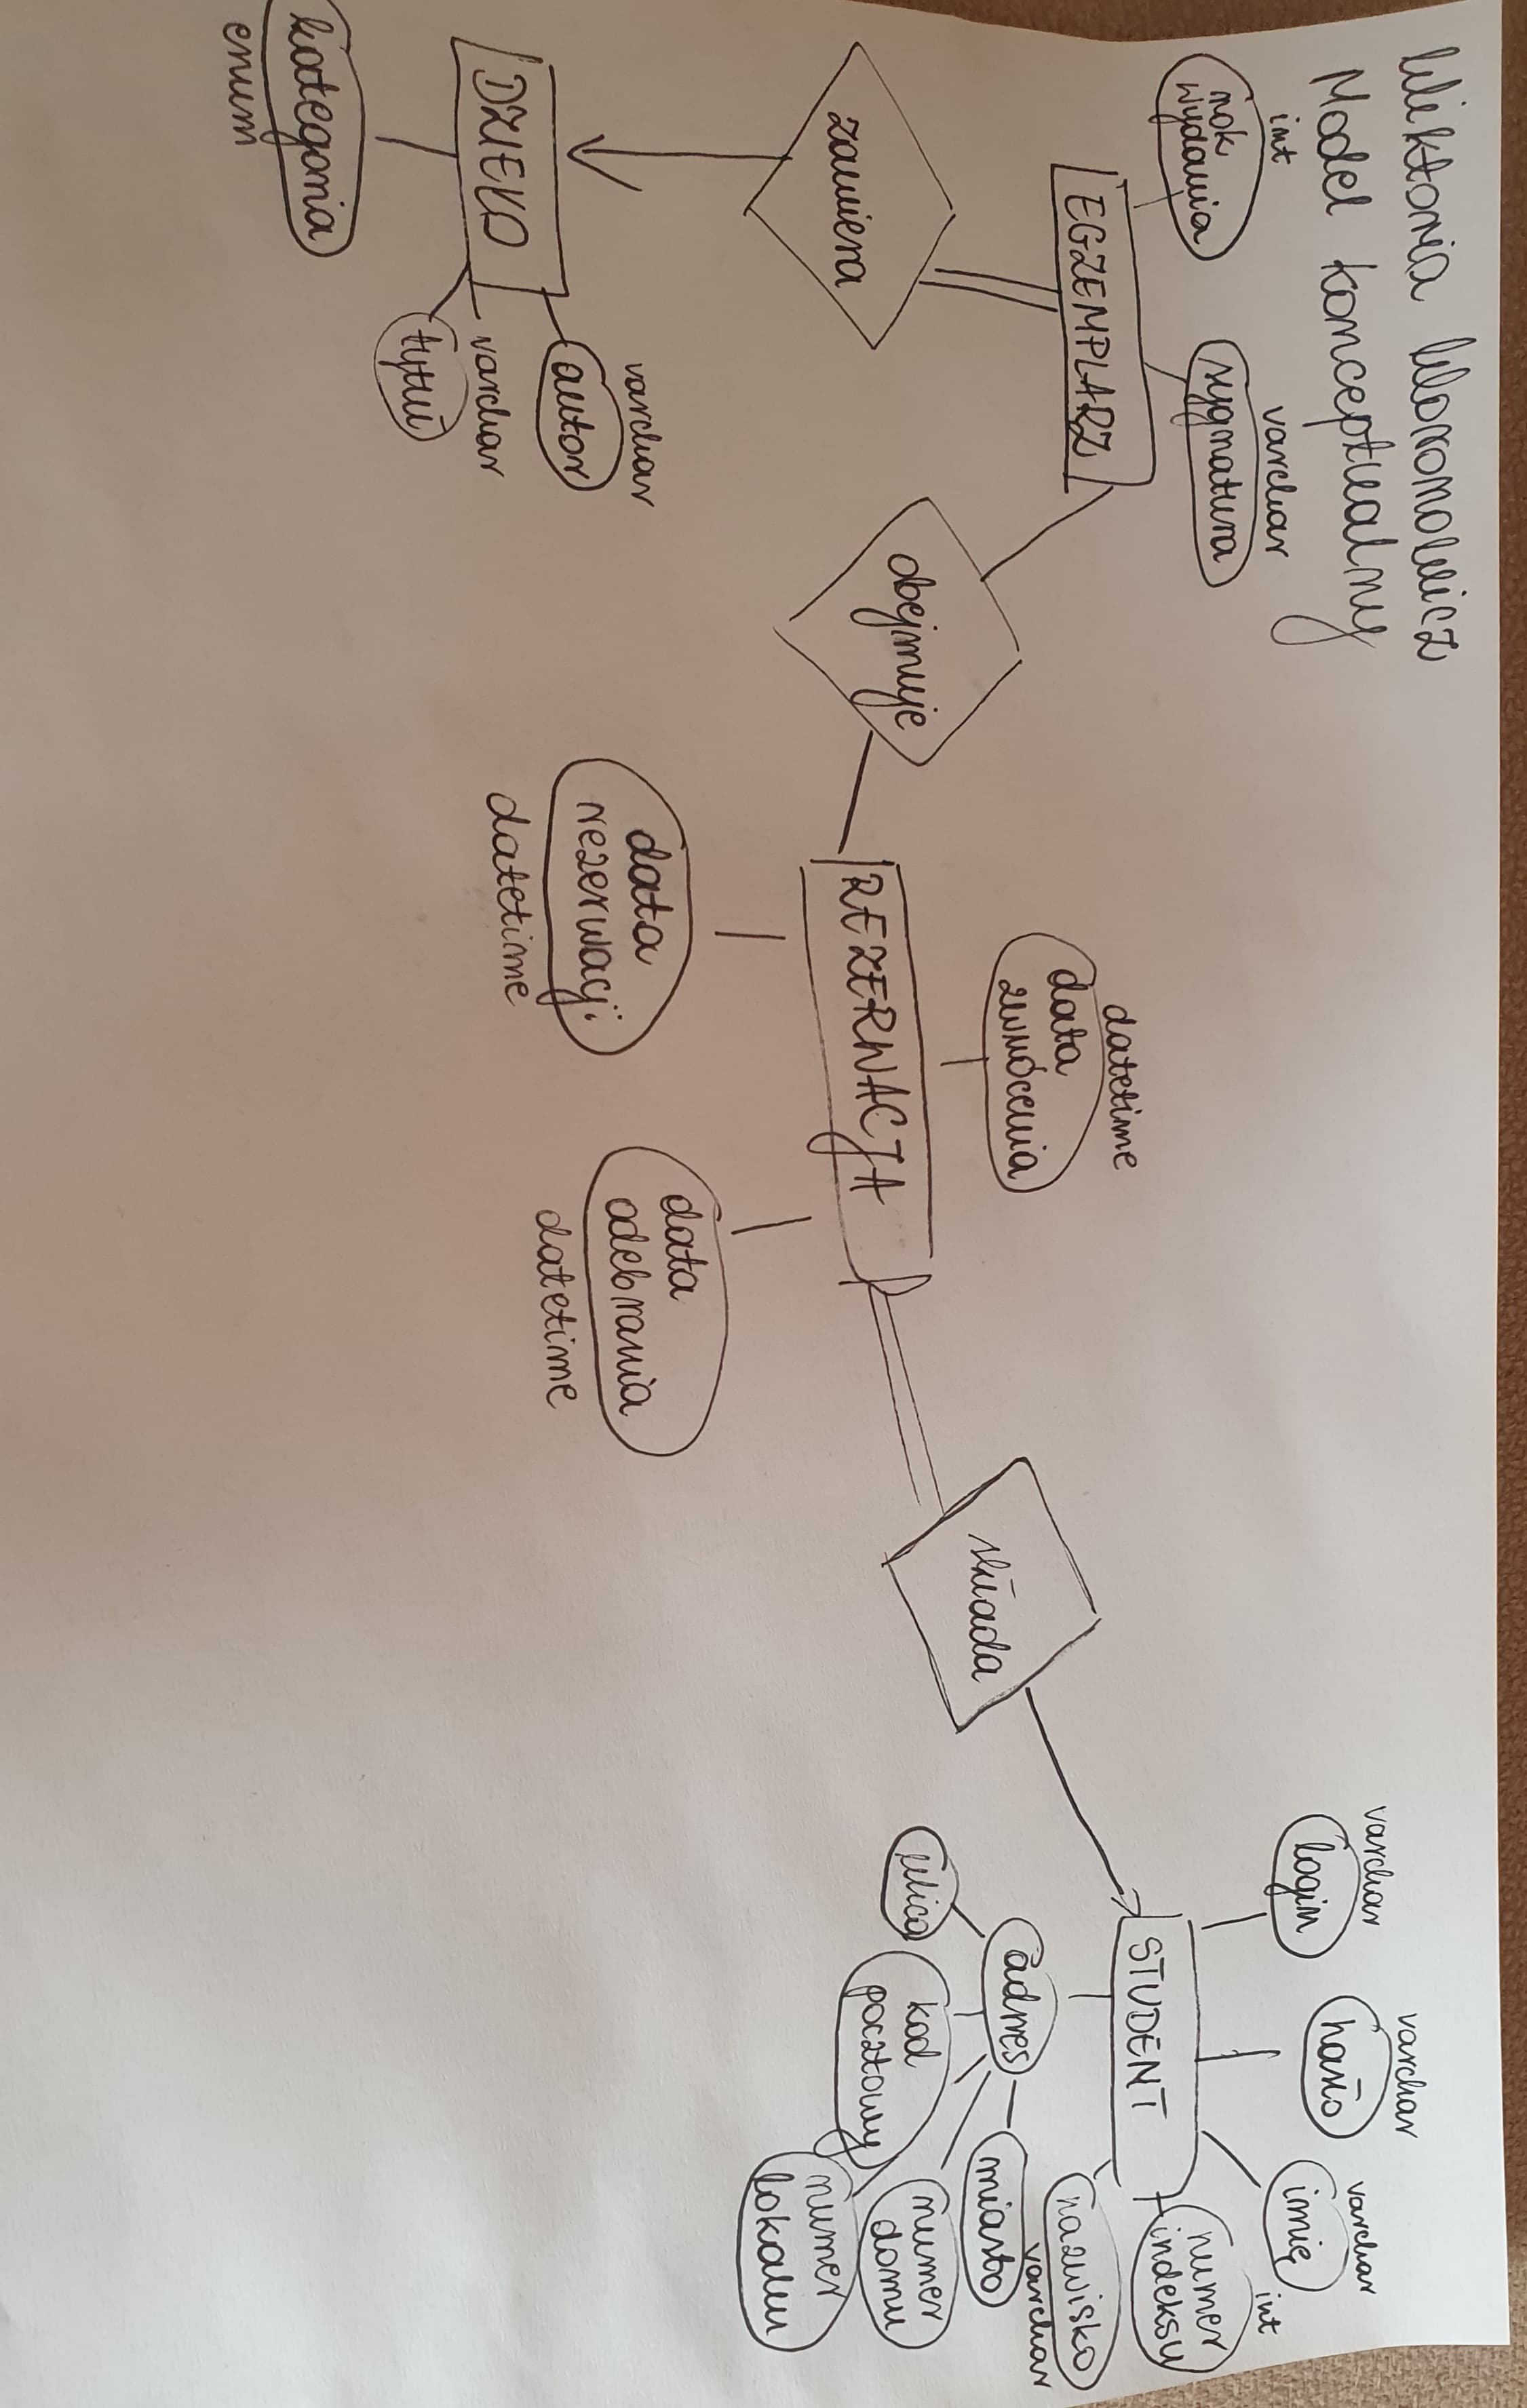 Wiktoria Woronowicz
Model konceptualny
int
rok
wydania
varchar
sygnatura
EGZEMPLARZ
zawiera
DZIEŁO
kategoria
enum
varchar
autor
varchar
tytuł
obejmuje
REZERWACJA
datetime
data
zwrócenia
data
rezerwacji
datetime
data
odebrania
datetime
składa
STUDENT
varchar
login
varchar
hasło
varchar
imię
int
numer
indeksu
nazwisko
varchar
adres
ulica
kod
pocztowy
miasto
numer
domu
numer
lokalu